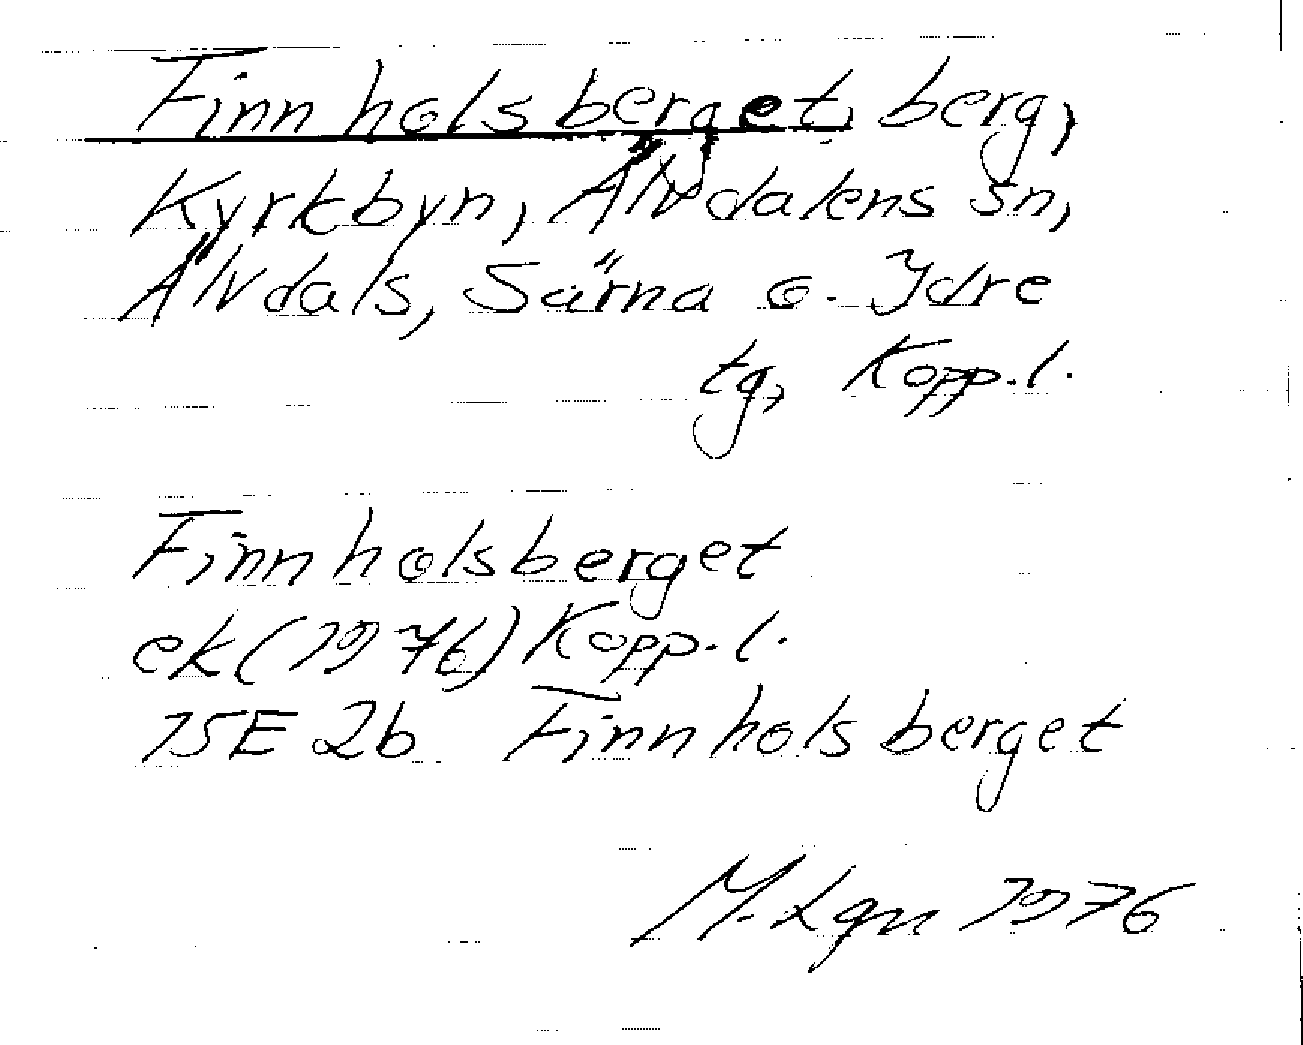 Finnholsberget, berg,
Kyrkbyn, Älvdalens sn,
Älvdals, Särna o. Idre
tg, Kopp.l.
Finnholsberget
ek (1976) Kopp.l.
15E 2b Finnholsberget
M. Lgn 1976